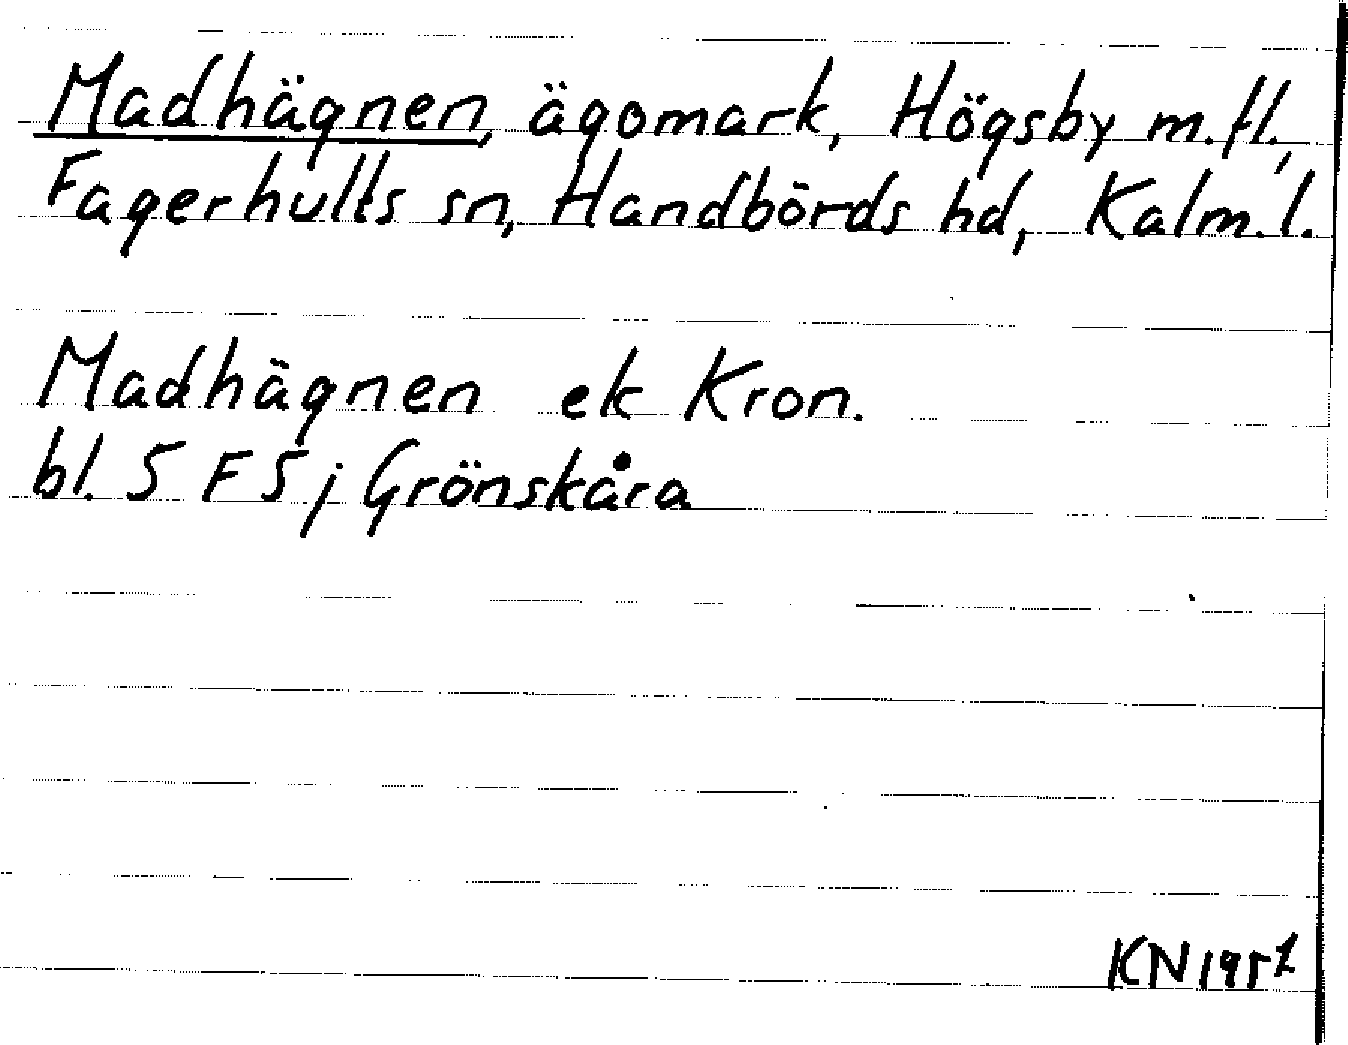 Madhägnen, ägomark, Högsby m.fl.,
Fagerhults sn, Handbörds hd, Kalm. l.
Madhägnen ek Kron.
bl. 5 F 5 j Grönskåra
KN 1957